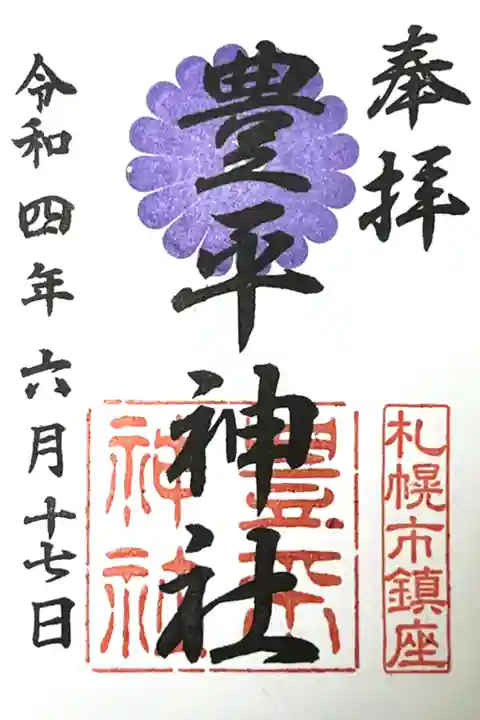 奉拝
札幌市鎮座
豊平神社
豊平神社
令和四年六月十七日